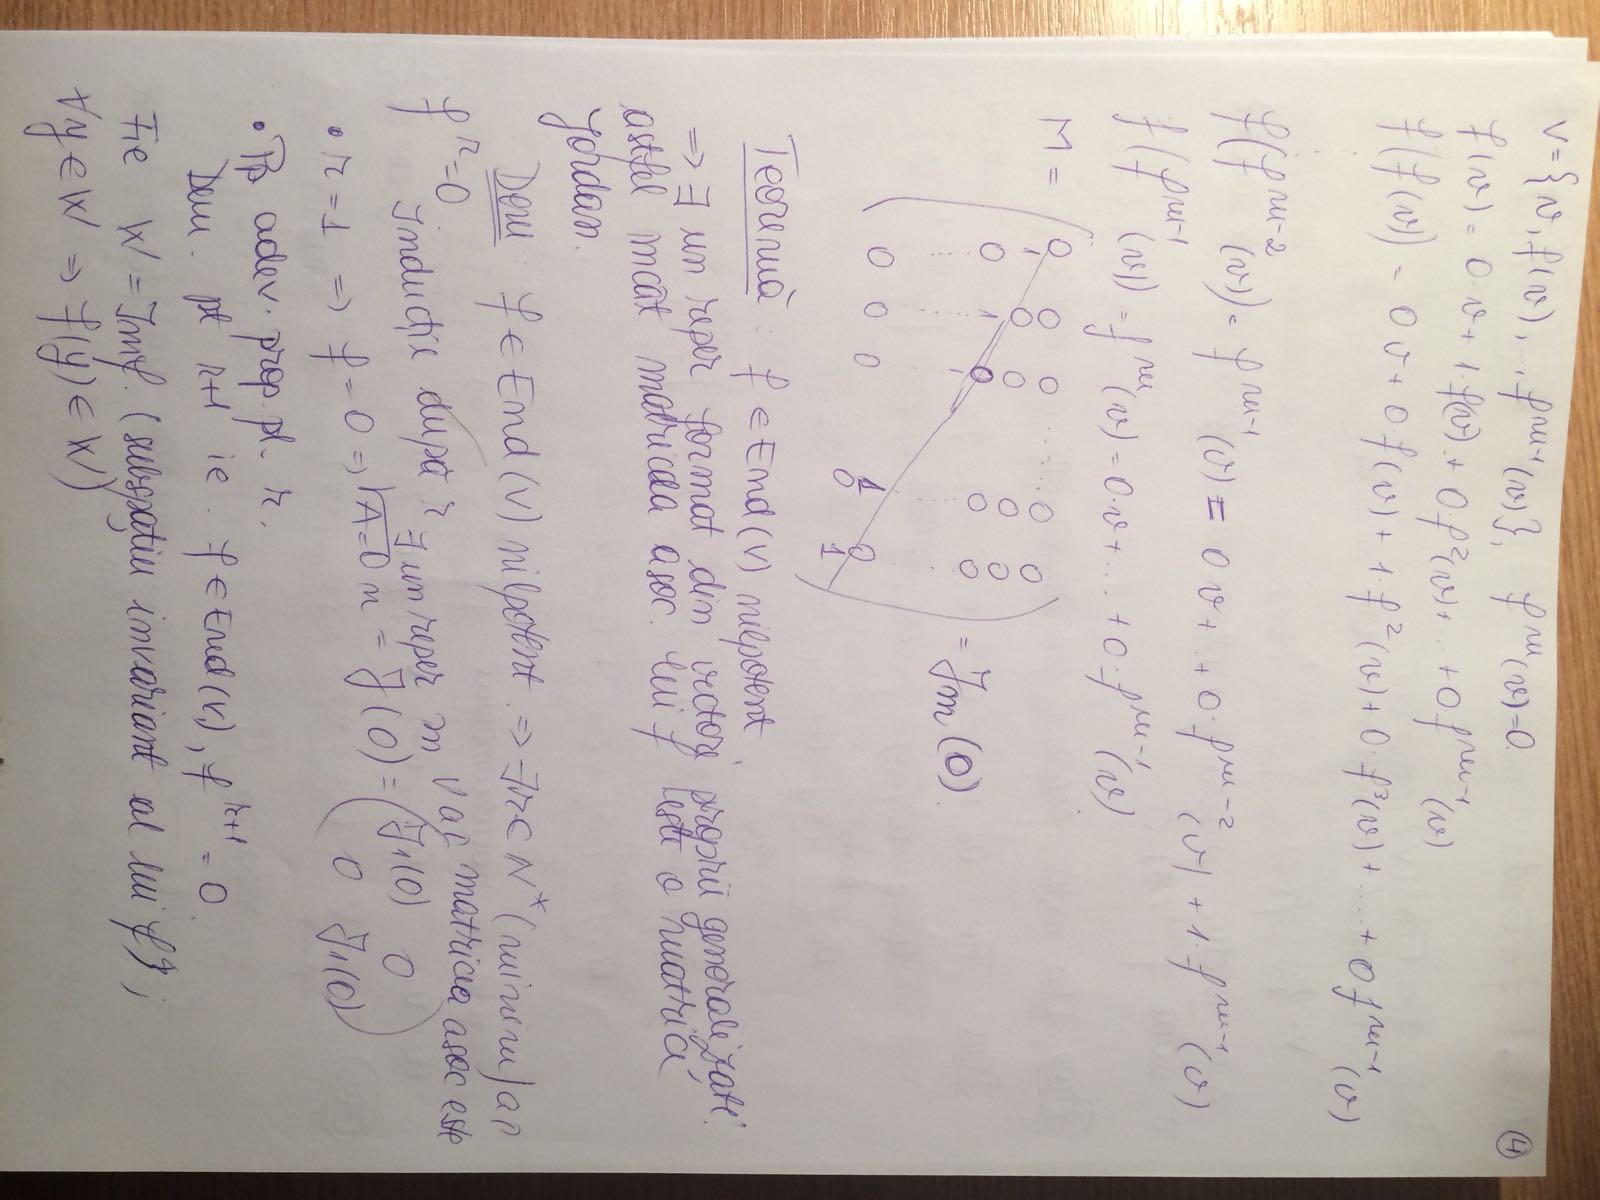 ④
V = {v, f(v), ..., f^{m-1}(v)}, f^m(v)=0
f(v) = 0·v + 1·f(v) + 0·f²(v) + .. + 0 f^{m-1}(v)
f(f(v)) = 0v + 0·f(v) + 1·f²(v) + 0·f³(v) + .... + 0 f^{m-1}(v)
f(f^{m-2}(v)) = f^{m-1}(v) = 0v + .. + 0·f^{m-2}(v) + 1·f^{m-1}(v)
f(f^{m-1}(v)) = f^m(v) = 0·v + ... + 0·f^{m-1}(v)
M =
0 0 0 ..... 0 0
1 0 0 0 0
0 1 0 ..... 0 0
0 0 0 1 0
= Jm(0).
Teoremă : f ∈ End(V) nilpotent
⇒ ∃ un reper format din vectori proprii generalizați
astfel încât matricea asoc. lui f este o matrice
Jordan.
Dem : f ∈ End(V) nilpotent ⇒ ∃ r ∈ N* (minim) aî
f^r = 0
Inducție după r ∃ un reper în V aî matricea asoc este
• r = 1 ⇒ f = 0 ⇒ A = 0n = J(0) = ( J1(0) 0
0 J1(0) )
• Pp adev. prop. pt. r.
Dem. pt r+1 ie. f ∈ End(V), f^{r+1} = 0
Fie W = Imf. (subspațiu invariant al lui f) ;
∀y ∈ W ⇒ f(y) ∈ W)